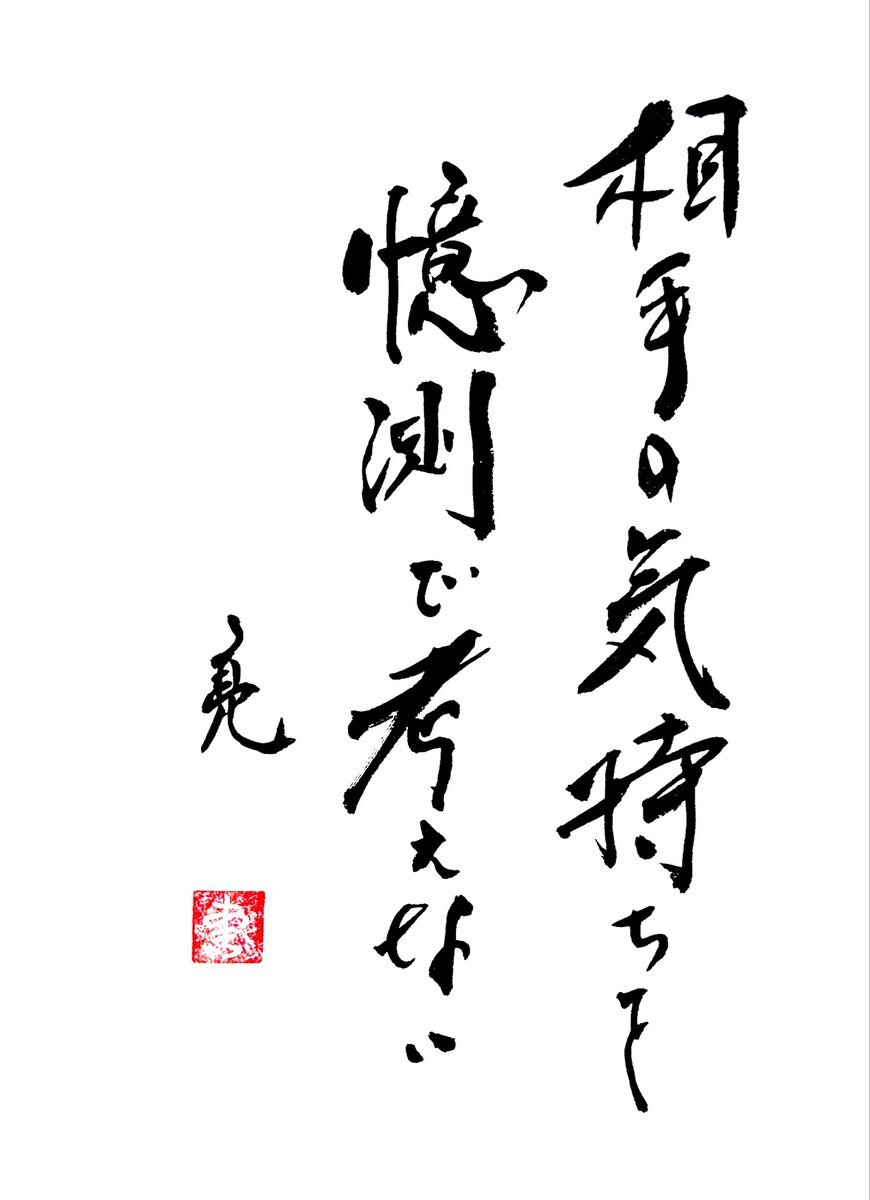 相手の気持ちを
憶測で考えない
亮